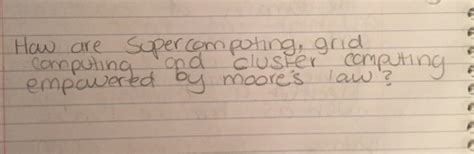 How are Supercomputing, grid
computing and cluster computing
empowered by moore's law?